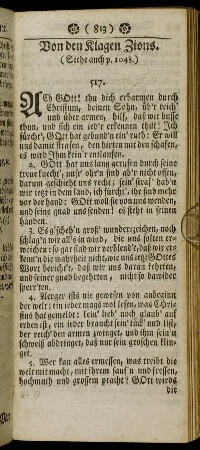 ( 813 )
Von den Klagen Zions.
(Siehe auch p. 1048.)
517.
ACh GOtt! thu dich erbarmen durch
Christum, deinen Sohn, über reich'
und über armen, hilf, daß wir busse
thun, und sich ein ied'r erkennen thut: Ich
fürcht', GOtt hat gebund'n ein' ruth: Er will
uns damit strafen, den hirten mit den schafen,
es wird Ihm kein'r entlaufen.
2. GOtt hat uns lang gerufen durch seine
treue knecht', uns're ohr'n sind ab'r nicht offen,
darum geschieht uns recht; sein' straf' hab'n
wir ietzt in dem land, ich fürcht', ihr sind mehr
vor der hand: GOtt woll sie von uns wenden,
und seine gnad uns senden! es steht in seinen
händen.
3. Es g'scheh'n groß' wunderzeichen, noch
schlag'n wir all's in wind, die uns solten er-
weichen: so gar sind wir verblend't, daß wir er-
kenn'n die wahrheit nicht, wie uns ietzt GOttes
Wort bericht't, daß wir uns daran kehrten,
und seiner gnad begehrten, nicht so dawider
sperr'ten.
4. Aerger ists nie gewesen von anbeginn
der welt; ein ieder mags wol lesen, was Chri-
stus hat gemeldt: kein' lieb' noch glaub' auf
erden ist, ein ieder braucht sein' tück' und list,
der reich' den armen zwinget, und ihm sein'n
schweiß abdringet, daß nur sein groschen klin-
get.
5. Wer kan alles ermessen, was treibt die
welt mit macht, mit ihrem sauf'n und fressen,
hochmuth und grossem pracht? GOtt wirds
die